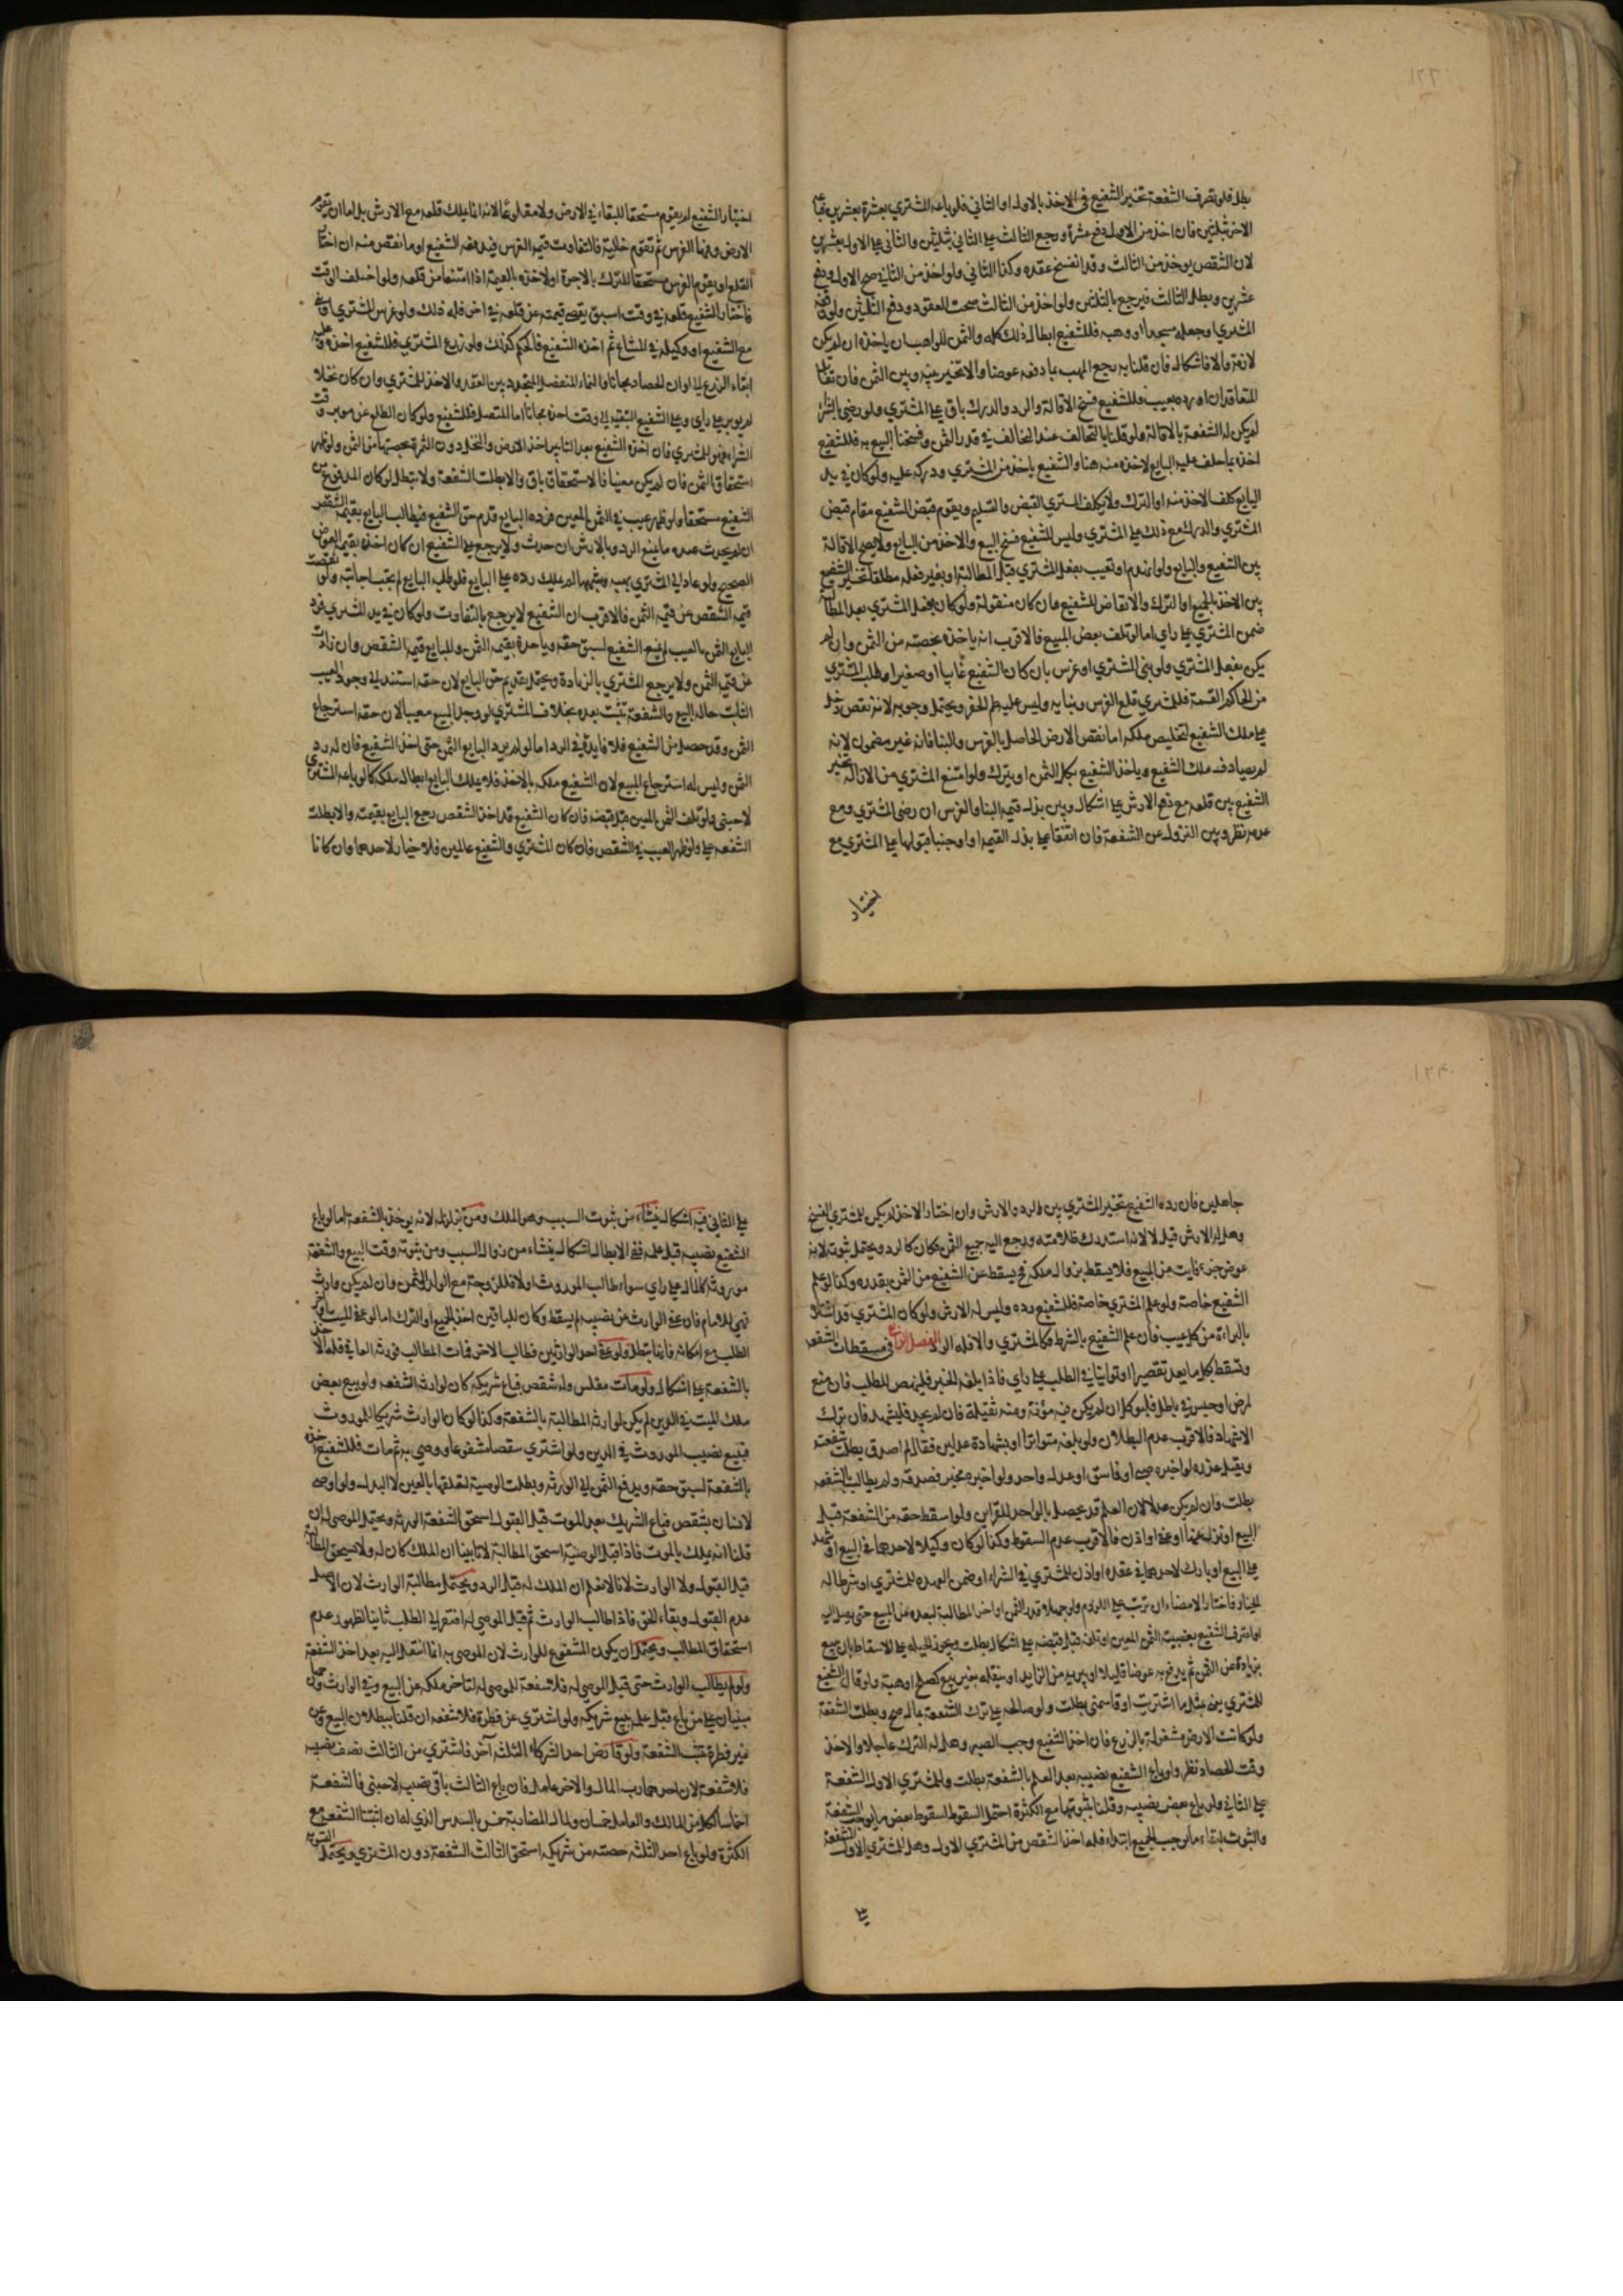 بطل فلو تصرف الشفعة تخير الشفيع في الاخذ بالاول او الثاني فلو باعه المشتري بعشرة بعشرين فباع
الاخر بثلثين فان اخذ من الاول دفع عشرة ورجع الثالث على الثاني بثلثين والثاني على الاول بعشرين
لان الشقص يوخذ من الثالث وقد انفسخ عقده وكذا الثاني ولو اخذ من الثاني صح الاول ودفع
عشرين وبطل الثالث فيرجع بالثلثين ولو اخذ من الثالث صحت العقود ودفع الثلثين ولو وقفه
المشتري او جعله مسجدا او وهبه فللشفيع ابطال ذلك كله والثمن للواهب ان ياخذه ان لم يكن
لازمة والا فاشكال فان قلنا به رجع المتهب بما دفعه عوضا والا تخير بينه وبين الثمن فان تقايل
المتعاقدان او رده بعيب فللشفيع فسخ الاقالة والرد والدرك باق على المشتري ولو رضي بالشراء
لم يكن له الشفعة بالاقالة ولو قلنا بالتحالف عند التخالف في قدر الثمن وفسخنا البيع به فللشفيع
اخذه بما حلف عليه البايع لاخذه منه هنا والشفيع ياخذ من المشتري ودركه عليه ولو كان في يد
البايع كلف الاخذ منه او الترك ولا يكلف المشتري القبض والتسليم ويقوم قبض الشفيع مقام قبض
المشتري والدرك مع ذلك على المشتري وليس للشفيع فسخ البيع والاخذ من البايع ولا يصح الاقالة
بين الشفيع والبايع ولو انهدم او تعيب بفعل المشتري قبل المطالبة او بغير فعله مطلقا تخير الشفيع
بين الاخذ بالجميع او الترك والانقاض للشفيع وان كان منقولة ولو كان بفعل المشتري بعد المطالبة
ضمن المشتري على راي اما لو تلف بعض المبيع فالاقرب انه ياخذه بحصته من الثمن وان لم
يكن بفعل المشتري ولو بنى المشتري او غرس بان كان الشفيع غايبا او صغيرا او طلب المشتري
من الحاكم القسمة فللمشتري قلع الغرس وبنايه وليس عليه طم الحفر ويحتمل وجوبه لانه نقص دخل
على ملك الشفيع لتخليص ملكه اما نقص الارض الحاصل بالغرس والبناء فانه غير مضمون لانه
لم يصادف ملك الشفيع وياخذ الشفيع بكل الثمن او يترك ولو امتنع المشتري من الازالة تخير
الشفيع بين قلعه مع دفع الارش على اشكال وبين بذل قيمة البنا والغرس ان رضى المشتري ومع
عدمه نظر وبين النزول عن الشفعة فان اتفقا على بذل القيمة او اوجبنا قبولها على المشتري مع
اختيار
اختيار الشفيع لم يقوم مستحقا للبقاء في الارض ولا مقلوعا لانه انما يملك قلعه مع الارش بل اما ان تقوم
الارض وفيها الغرس ثم تقوم خالية فالتفاوت قيمة الغرس فيدفعه الشفيع او ما نقص منه ان اختار
القلع او يقوم الغرس مستحقا للترك بالاجرة او لاخذه بالقيمة اذا امتنعا من قلعه ولو اختلف الوقت
فاختار الشفيع قلعه في وقت اسبق يقصر قيمته عن قلعه في اخر فله ذلك ولو غرس المشتري
مع الشفيع او وكيله في المشاع ثم اخذه الشفيع فالحكم كذلك ولو زرع المشتري فللشفيع اخذه وعليه
ابقاء الزرع الى اوان الحصاد مجانا والنماء المنفصل المتجدد بين العقد والاخذ للمشتري وان كان نخلا
لم يوبر على راي وعلى الشفيع التبقية الى وقت اخذه مجانا اما المتصل فللشفيع ولو كان الطلع غير موبر وقت
الشراء فهو للمشتري فان اخذه الشفيع بعد التابير اخذ الارض والنخل دون الثمرة بحصتهما من الثمن ولو ظهر
استحقاق الثمن فان لم يكن معينا فالاستحقاق باق والا بطلت الشفعة ولا تبطل لو كان المدفوع من
الشفيع مستحقا ولو ظهر عيب في الثمن المعين فرده البايع قدم حق الشفيع فيطالب البايع بقيمة الشقص
ان لم يحدث عنده ما يمنع الرد وبالارش ان حدث ولا يرجع على الشفيع ان كان اخذه بقيمة العوض
الصحيح ولو عاد الى المشتري بهبة وشبهها لم يملك رده على البايع فلو طلبه البايع لم يجب اجابته ولو نقصت
قيمة الشقص عن قيمة الثمن فالاقرب ان الشفيع لا يرجع بالتفاوت ولو كان في يد المشتري فرد
البايع الثمن بالعيب لم يمنع الشفيع لسبق حقه وياخذه بقيمة الثمن وللبايع قيمة الشقص وان زادت
عن قيمة الثمن ولا يرجع المشتري بالزيادة ويحتمل تقديم حق البايع لان حقه استند الى وجود العيب
الثابت حالة البيع والشفعة تثبت بعده بخلاف المشتري لو وجد المبيع معيبا لان حقه استرجاع
الثمن وقد حصل من الشفيع فلا فايدة في الرد اما لو لم يرد البايع الثمن حتى اخذ الشفيع فان له رد
الثمن وليس له استرجاع المبيع لان الشفيع ملكه بالاخذ فلا يملك البايع ابطال ملكه كما لو باعه المشتري
لاجنبي ولو تلف الثمن المعين قبل قبضه فان كان الشفيع قد اخذ الشقص رجع البايع بقيمته والا بطلت
الشفعة على ولو ظهر العيب في الشقص فان كان المشتري والشفيع عالمين فلا خيار لاحدهما وان كانا
جاهلين فان رده الشفيع تخير المشتري بين الرد والارش وان اختار الاخذ لم يكن للمشتري الفسخ
وهل له الارش قيل لا لانه استدرك ظلامته ورجع اليه جميع الثمن فكان كالرد ويحتمل ثبوته لانه
عوض جزء فايت من المبيع فلا يسقط بزوال ملكه فح يسقط عن الشفيع من الثمن بقدره وكذا لو علم
الشفيع خاصة ولو علم المشتري خاصة فللشفيع رده وليس له الارش ولو كان المشتري قد اشتراه
بالبراءة من كل عيب فان علم الشفيع بالشرط فكالمشتري والا فله الرد الفصل الرابع في مسقطات الشفعة
وتسقط بكل ما يعد تقصيرا او توانيا في الطلب على راي فاذا بلغه الخبر فلينهض للطلب فان منع
لمرض او حبس في باطل فليوكل ان لم يكن فيه مؤنة ومنة ثقيلة فان لم يجد فليشهد فان ترك
الاشهاد فالاقرب عدم البطلان ولو بلغه متواترا او بشهادة عدلين فقال لم اصدق بطلت شفعته
ويقبل عذره لو اخبره صبي او فاسق او عدل واحد ولو اخبره مخبر فصدقه ولم يطالب بالشفعة
بطلت فان لم يكن عدلا لان العلم قد يحصل بالواحد للقراين ولو اسقط حقه من الشفعة قبل
البيع او نزل عنها او عفا او اذن فالاقرب عدم السقوط وكذا لو كان وكيلا لاحدهما في البيع او شهد
على البيع او بارك لاحدهما في عقده او اذن للمشتري في الشراء او ضمن العهدة للمشتري او شرطا له
الخيار فاختار الامضاء ان ترتب على اللزوم ولو جهلا قدر الثمن او اخر المطالبة لبعده عن المبيع حتى يصل اليه
او اعترف الشفيع بغصبية الثمن المعين او تلفه قبل قبضه على اشكال بطلت ويجوز الحيلة على الاسقاط بان يبيع
بزيادة عن الثمن ثم يدفع به عوضا قليلا او يبريه من الزايد او ينقله بغير بيع كصلح او هبة ولو قال الشفيع
للمشتري بعني بمثل ما اشتريت او قاسمني بطلت ولو صالحه على ترك الشفعة بمال صح وبطلت الشفعة
ولو كانت الارض مشغولة بالزرع فان اخذ الشفيع وجب الصبر وهل له الترك عاجلا والاخذ
وقت الحصاد نظر ولو باع الشفيع نصيبه بعد العلم بالشفعة بطلت وللمشتري الاول الشفعة
على الثاني ولو باع بعض نصيبه وقلنا بثبوتها مع الكثرة احتمل السقوط لسقوط بعض ما يوجب الشفعة
والثبوت لبقاء ما يوجب الجميع ابتداء فله اخذ الشقص من المشتري الاول وهل للمشتري الاول الشفعة
على
على الثاني فيه اشكال ينشاء من ثبوت السبب وهو الملك ومن تزلزله لانه يوخذ بالشفعة اما لو باع
الشفيع نصيبه قبل علمه ففي الابطال اشكال ينشاء من زوال السبب ومن ثبوته وقت البيع والشفعة
موروثة كالمال على راي سواء طالب الموروث او لا فللزوجة مع الولد الثمن وان لم يكن وارث
فهي للامام فان عفى الوارث عن نصيبه لم يسقط وكان للباقين اخذ الجميع او الترك اما لو عفى الميت او اخر
الطلب مع امكانه فانها تبطل ولو عفى احد الوارثين فطالب الاخر فمات المطالب فورثه العافي فله الاخذ
بالشفعة على اشكال ولو مات مفلس وله شقص فباع شريكه كان لوارثه الشفعة ولو بيع بعض
ملك الميت في الدين لم يكن لوارثه المطالبة بالشفعة وكذا لو كان الوارث شريكا للموروث
فبيع نصيب الموروث في الدين ولو اشترى شقصا مشفوعا ووصى به ثم مات فللشفيع اخذه
بالشفعة لسبق حقه ويدفع الثمن الى الورثة وبطلت الوصية لتعلقها بالعين لا البدل ولو اوصى
لانسان بشقص فباع الشريك بعد الموت قبل القبول استحق الشفعة الورثة ويحتمل الموصى له ان
قلنا انه يملك بالموت فاذا قبل الوصية استحق المطالبة لانا تبينا ان الملك كان له ولا يستحق المطالبة
قبل القبول ولا الوارث لانا لا نعلم ان الملك له قبل الرد ويحتمل مطالبة الوارث لان الاصل
عدم القبول وبقاء الحق فاذا طالب الوارث ثم قبل الموصى له افتقر الى الطلب ثانيا لظهور عدم
استحقاق المطالب ويحتمل ان يكون المشفوع للوارث لان الموصى به انما انتقل اليه بعد اخذ الشفعة
ولو لم يطالب الوارث حتى قبل الموصى له فلا شفعة للموصى له لتاخر ملكه عن البيع وفي الوارث وجهان
مبنيان على من باع قبل علمه ببيع شريكه ولو اشترى عن فطرة فلا شفعة ان قلنا ببطلان البيع وعن
غير فطرة تثبت الشفعة ولو قارض احد الشركاء الثلثة آخر فاشترى من الثالث نصف نصيبه
فلا شفعة لان احدهما رب المال والاخر عامل فان باع الثالث باقي نصيبه لاجنبي فالشفعة
اخماسا لكل من المالك والعامل خمسان ولمال المضاربة خمس بالسدس الذي له ان اثبتنا الشفعة مع
الكثرة ولو باع احد الثلثة حصته من شريكه استحق الثالث الشفعة دون المشتري ويحتمل التسوية